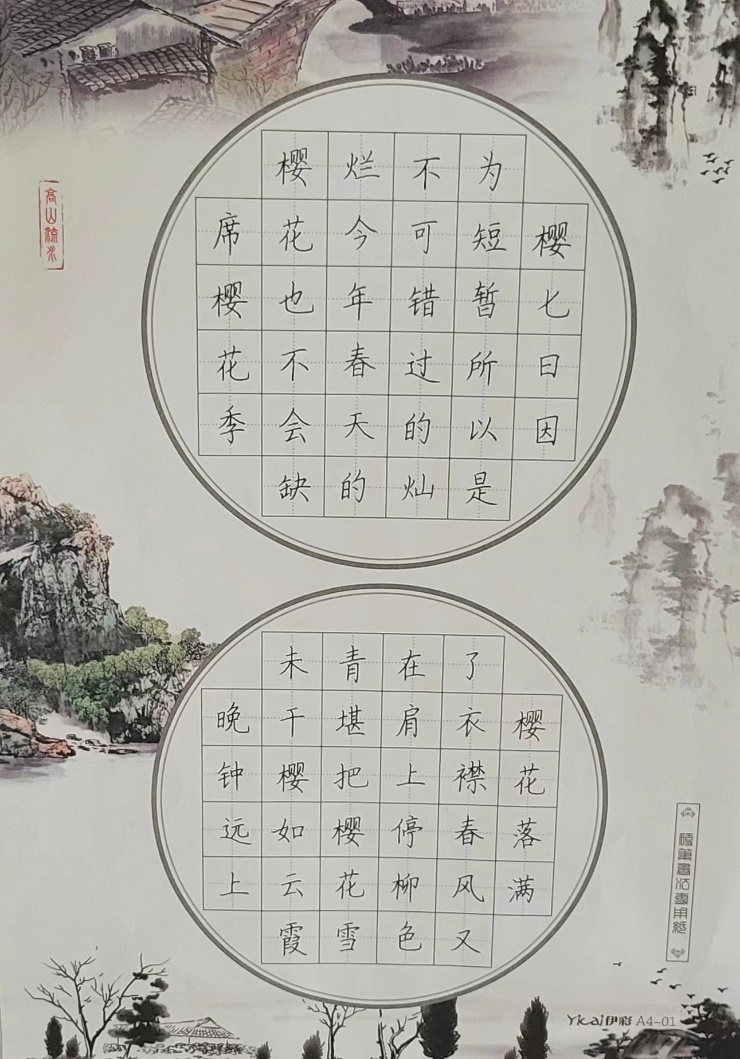 樱七日因
为短暂所以是
不可错过的灿
烂今年春天的
樱花也不会缺
席樱花季
樱花落满
了衣襟春风又
在肩上停柳色
青堪把樱花雪
未干樱如云霞
晚钟远上
高山流水
硬筆書法專用紙
Yical伊彩 A4-01